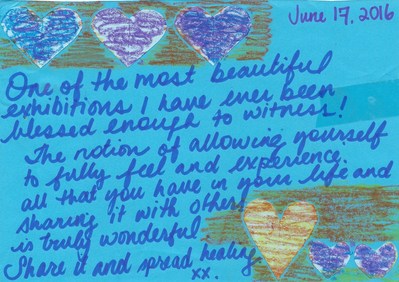 June 17, 2016
One of the most beautiful
exhibitions I have ever been
blessed enough to witness!
The notion of allowing yourself
to fully feel and experience
all that you have in your life and
sharing it with others
is truly wonderful.
Share it and spread healing.
xx.